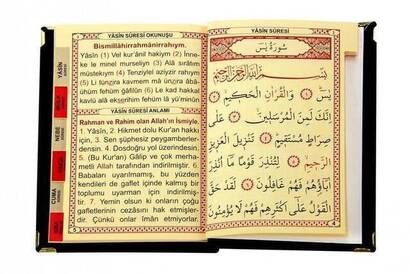 YÂSÎN SÛRESİ OKUNUŞU
Bismillâhirrahmânirrahıym.
Yâsîn (1) Vel kur'ânil hakiym (2) İnne-
ke le minel murseliyn (3) Alâ sırâtım
müstekıym (4) Tenziylel aziyzir rahıym
(5) Li tünzira kavmem mâ ünzira âbâü-
hüm fehüm ğâfilûn (6) Le kad hakkal
kavlü alâ ekserihim fehüm lâ yü'minûn
YÂSÎN SÛRESİ ANLAMI
Rahman ve Rahim olan Allah'ın İsmiyle.
1. Yâsîn, 2. Hikmet dolu Kur'an hakkı
için, 3. Sen şüphesiz peygamberler-
densin. 4. Dosdoğru yol üzerindesin.
5. (Bu Kur'an) Gâlip ve çok merha-
metli Allah tarafından indirilmiştir. 6.
Babaları uyarılmamış, bu yüzden
kendileri de gaflet içinde kalmış bir
toplumu uyarman için indirilmiş-
tir. 7. Yemin olsun ki onların çoğu
gafletlerinin cezasını hak etmişler-
dir. Çünkü onlar îman etmiyorlar.
5
YÂSÎN
NEBE
CUMA
YÂSÎN SÛRESİ
سُورَةُ يٰسٓ
بِسْمِ اللّٰهِ الرَّحْمٰنِ الرَّحِيمِ
يٰسٓ ﴿١﴾ وَالْقُرْاٰنِ الْحَكِيمِ ﴿٢﴾
اِنَّكَ لَمِنَ الْمُرْسَلِينَ ﴿٣﴾ عَلٰى
صِرَاطٍ مُسْتَقِيمٍ ﴿٤﴾ تَنْزِيلَ الْعَزِيزِ
الرَّحِيمِ ﴿٥﴾ لِتُنْذِرَ قَوْمًا مَٓا اُنْذِرَ
اٰبَٓاؤُهُمْ فَهُمْ غَافِلُونَ ﴿٦﴾ لَقَدْ حَقَّ
الْقَوْلُ عَلٰٓى اَكْثَرِهِمْ فَهُمْ لَا يُؤْمِنُونَ
4